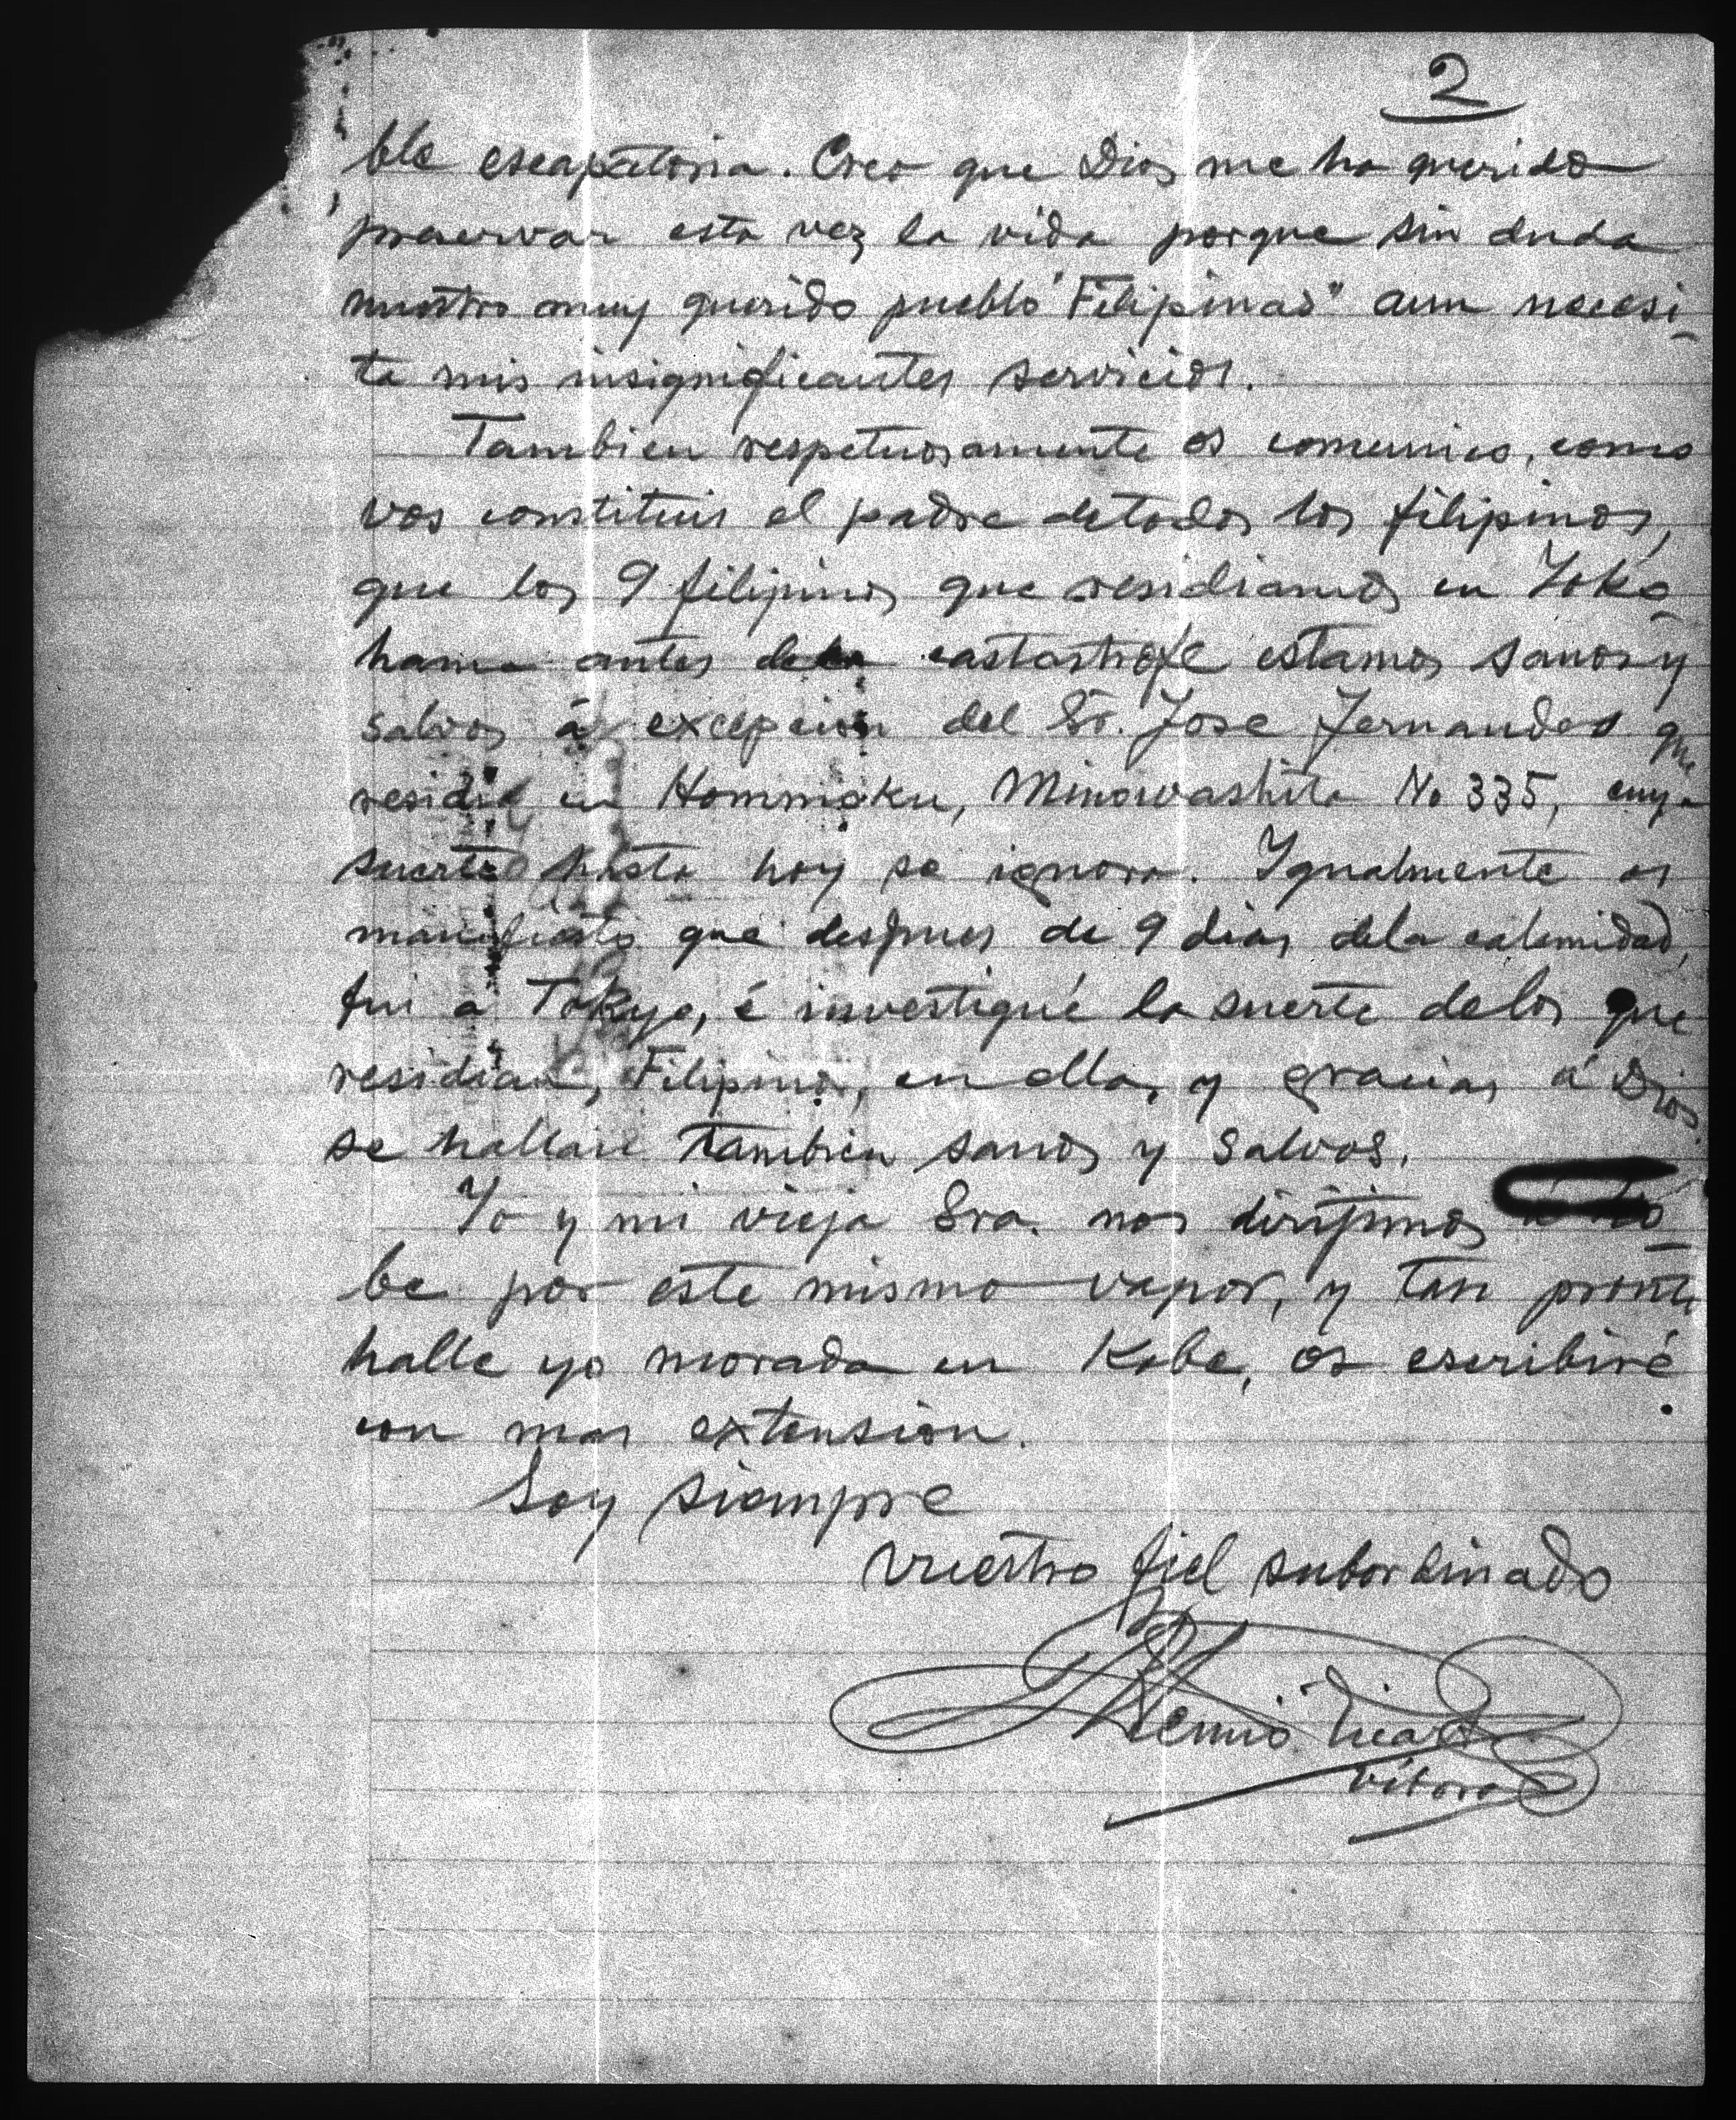 2
ble escapatoria. Creo que Dios me ha querido
preservar esta vez la vida porque sin duda
nuestro muy querido pueblo "Filipinas" aun necesi-
ta mis insignificantes servicios.
Tambien respetuosamente os comunico, como
vos constituis el padre de todos los filipinos,
que los 9 filipinos que residiamos en Yoko-
hama antes de la castastrofe estamos sanos y
salvos á excepcion del Sr. Jose Fernandes que
residia en Hommoku, Minowashita No 335, cuya
suerte hasta hoy se ignora. Igualmente os
manifiesto que despues de 9 dias dela calamidad,
fui a Tokyo, é investigué la suerte delos que
residian, Filipinos, en ella, y gracias á Dios
se hallan tambien sanos y salvos.
Yo y mi vieja Sra. nos dirijimos á Ko-
be por este mismo vapor, y tan pronto
halle yo morada en Kobe, os escribiré
con mas extension.
Soy siempre
vuestro fiel subordinado
Artemio Ricarte
Vibora